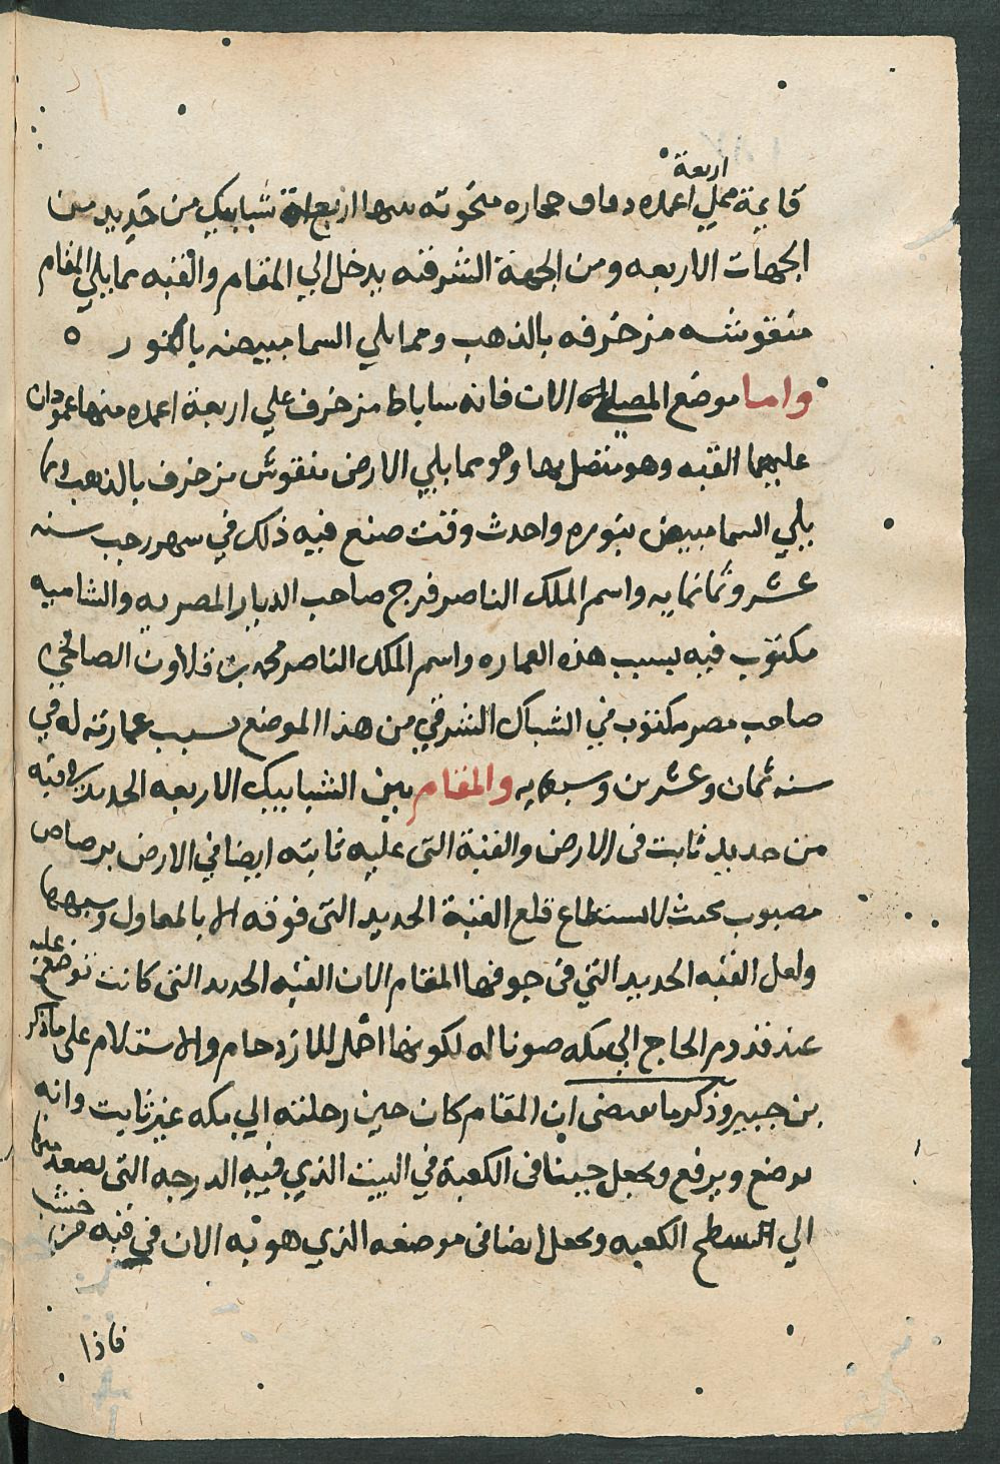 اربعة
قايمة على اعمده دقاق حجاره منحوته بينها اربعة شبابيك من حديد من
الجهات الاربعه ومن الجهة الشرقيه يدخل الي المقام والقبه مما يلي المقام
منقوشه مزخرفه بالذهب ومما يلي السما مبيضه بالنور ه
واما موضع المصلي الان فانه ساباط مزخرف علي اربعة اعمده منها عمودان
عليهما القبه وهو متصل بها وهو مما يلي الارض منقوش مزخرف بالذهب ومما
يلي السما مبيض بنوره واحدث وقت صنع فيه ذلك في شهر رجب سنه
عشر وثمانمايه واسم الملك الناصر فرج صاحب الديار المصريه والشاميه
مكتوب فيه بسبب هذه العماره واسم الملك الناصر محمد بن قلاون الصالحي
صاحب مصر مكتوب في الشباك الشرقي من هذا الموضع بسبب عمارته له في
سنه ثمان وعشرين وسبعمايه والمقام بين الشبابيك الاربعه الحديد في قبه
من حديد ثابت في الارض والقبة التي عليه ثابته ايضا في الارض برصاص
مصبوب بحيث لا يستطاع قلع القبة الحديد التي فوقه الا بالمعاول وشبهها
ولعل القبه الحديد التي في جوفها المقام الان القبه الحديد التي كانت توضع عليه
عند قدوم الحاج الي مكه صونا له لكونها احمل للازدحام والاستلام على ما ذكر
بن جبير وذكر ما يقتضي ان المقام كان حين رحلته الي مكه غير ثابت وانه
يوضع ويرفع ويجعل حينا في الكعبة في البيت الذي فيه الدرجه التي يصعد منها
الي السطح الكعبه ويجعل ايضا في موضعه الذي هو به الان في قبه من خشب
فاذا